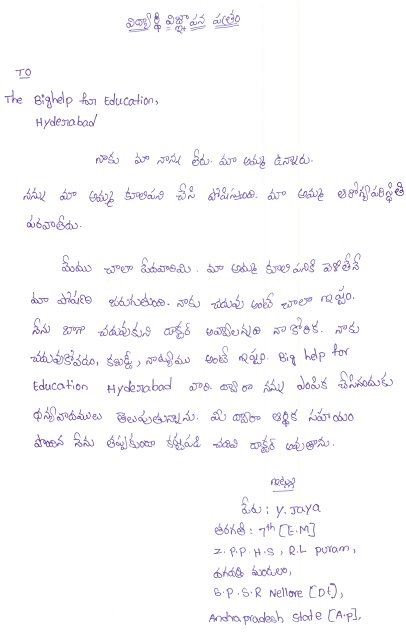 విద్యార్థి విజ్ఞాపన పత్రం
TO
The Bighelp for Education,
Hyderabad
నాకు మా నాన్న లేరు. మా అమ్మ ఉన్నారు.
నన్ను మా అమ్మ కూలిపని చేసి పోషిస్తుంది. మా అమ్మ ఆరోగ్యపరిస్థితి
పరవాలేదు.
మేము చాలా పేదవారిమి. మా అమ్మ కూలి పనికి వెళితేనే
మా పోషణ జరుగుతుంది. నాకు చదువు అంటే చాలా ఇష్టం.
నేను బాగా చదువుకుని డాక్టర్ అవ్వాలన్నది నా కోరిక. నాకు
చదువుకోవడం, కబడ్డీ, నాట్యము అంటే ఇష్టం. Big help for
Education Hyderabad వారి ద్వారా నన్ను ఎంపిక చేసినందుకు
ధన్యవాదములు తెలుపుతున్నాను. మీ ద్వారా ఆర్థిక సహాయం
పొందిన నేను తప్పకుండా కష్టపడి చదివి డాక్టర్ అవుతాను.
ఇట్లు
పేరు : Y. Jaya
తరగతి : 7th [E.M]
Z.P.P.H.S, R.L Puram,
దగదర్తి మండలం,
S.P.S.R Nellore [Dt],
Andhra pradesh State [A.p].